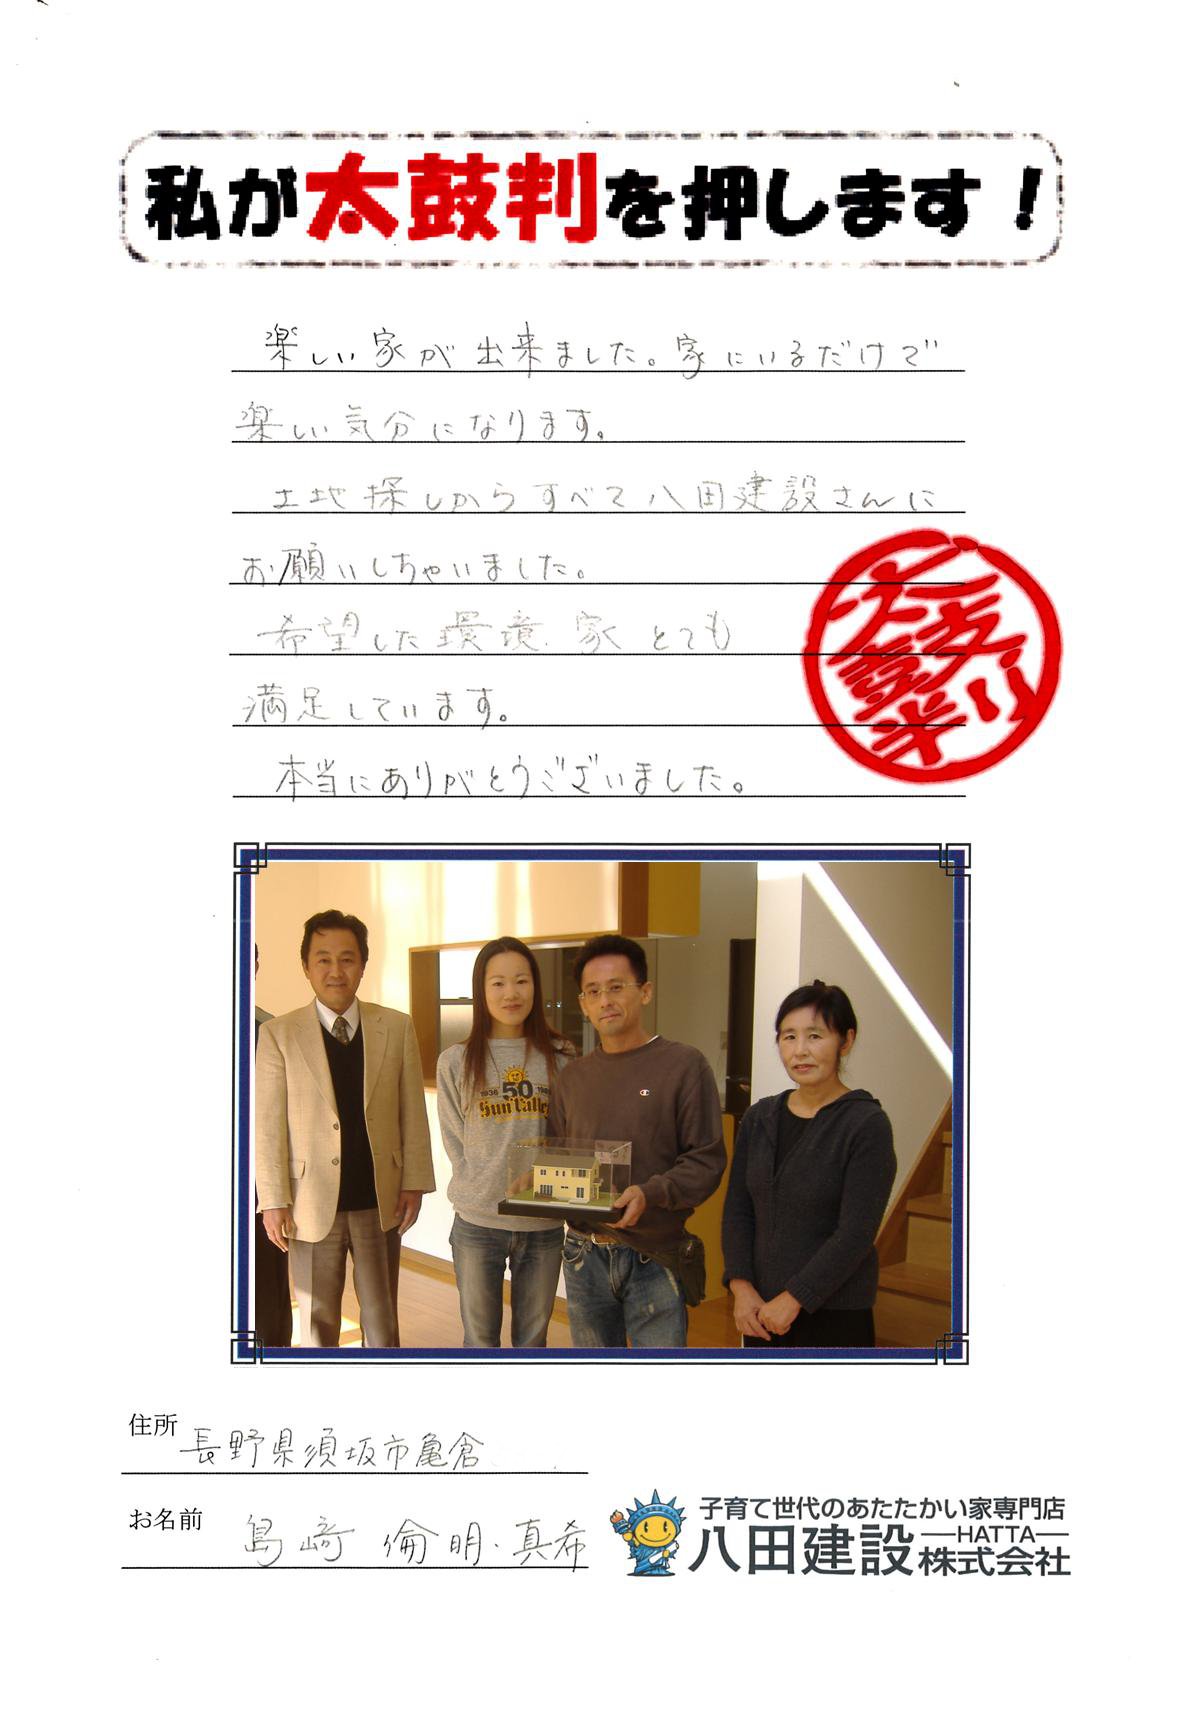 私が太鼓判を押します！
楽しい家が出来ました。家にいるだけで
楽しい気分になります。
土地探しからすべて八田建設さんに
お願いしちゃいました。
希望した環境、家とても
満足しています。
本当にありがとうございました。
太鼓判
1936 50 1986
Sun Valley
住所 長野県須坂市亀倉
お名前 島﨑 倫明・真希
子育て世代のあたたかい家専門店
八田建設 ―HATTA― 株式会社